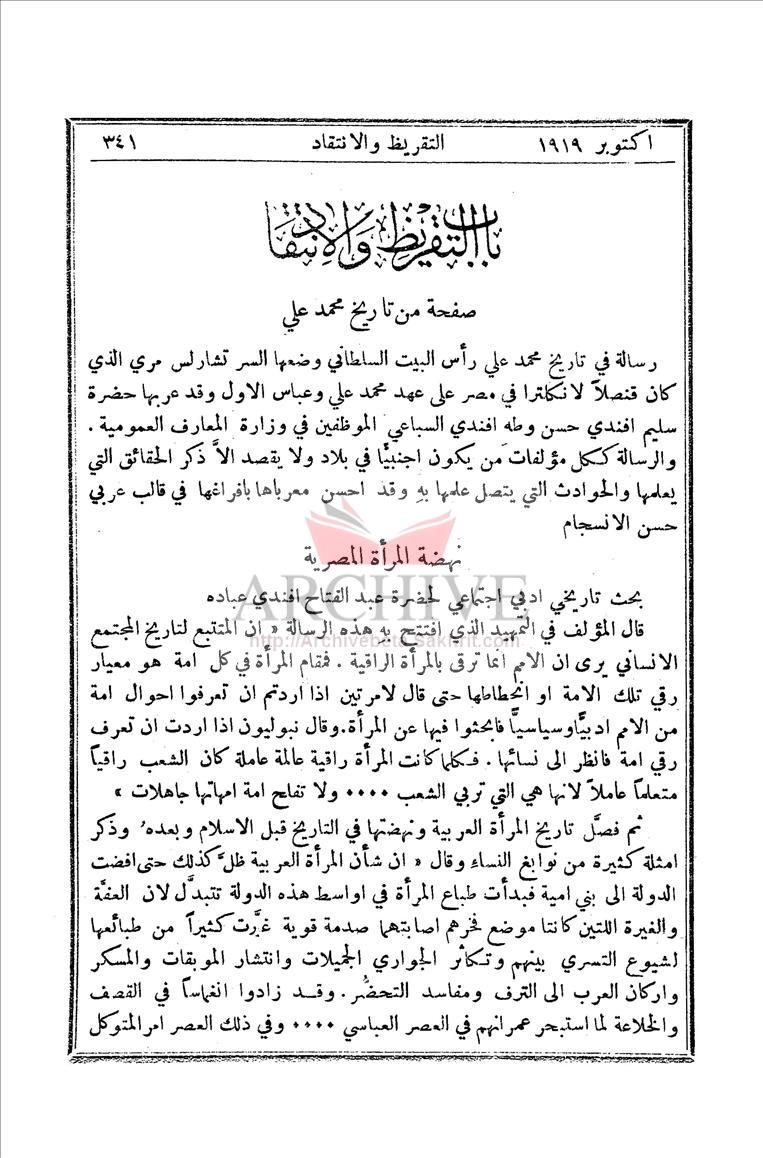 اكتوبر ١٩١٩ التقريظ والانتقاد ٣٤١
باب التقريظ والانتقاد
صفحة من تاريخ محمد علي
رسالة في تاريخ محمد علي رأس البيت السلطاني وضعها السر تشارلس مري الذي
كان قنصلاً لانكلترا في مصر على عهد محمد علي وعباس الاول وقد عربها حضرة
سليم افندي حسن وطه افندي السباعي الموظفين في وزارة المعارف العمومية .
والرسالة ككل مؤلفات من يكون اجنبيًّا في بلاد ولا يقصد الاَّ ذكر الحقائق التي
يعلمها والحوادث التي يتصل علمها بهِ وقد احسن معرباها بافراغها في قالب عربي
حسن الانسجام
نهضة المرأة المصرية
ARCHIVE
http://Archivebeta.Sakhrit.com
بحث تاريخي ادبي اجتماعي لحضرة عبد الفتاح افندي عباده
قال المؤلف في التمهيد الذي افتتح بهِ هذه الرسالة « ان المتتبع لتاريخ المجتمع
الانساني يرى ان الامم انما ترقى بالمرأة الراقية . فمقام المرأة في كل امة هو معيار
رقي تلك الامة او انحطاطها حتى قال لامرتين اذا اردتم ان تعرفوا احوال امة
من الامم ادبيًّا وسياسيًّا فابحثوا فيها عن المرأة. وقال نبوليون اذا اردت ان تعرف
رقي امة فانظر الى نسائها . فكلما كانت المرأة راقية عالمة عاملة كان الشعب راقياً
متعلماً عاملاً لانها هي التي تربي الشعب .... ولا تفلح امة امهاتها جاهلات »
ثم فصَّل تاريخ المرأة العربية ونهضتها في التاريخ قبل الاسلام وبعدهُ وذكر
امثلة كثيرة من نوابغ النساء وقال « ان شأن المرأة العربية ظلَّ كذلك حتى افضت
الدولة الى بني امية فبدأت طباع المرأة في اواسط هذه الدولة تتبدَّل لان العفَّة
والغيرة اللتين كانتا موضع فخرهم اصابتهما صدمة قوية غيَّرت كثيراً من طبائعها
لشيوع التسري بينهم وتكاثر الجواري الجميلات وانتشار الموبقات والمسكر
واركان العرب الى الترف ومفاسد التحضُّر. وقد زادوا انغماساً في القصف
والخلاعة لما استبحر عمرانهم في العصر العباسي .... وفي ذلك العصر امر المتوكل